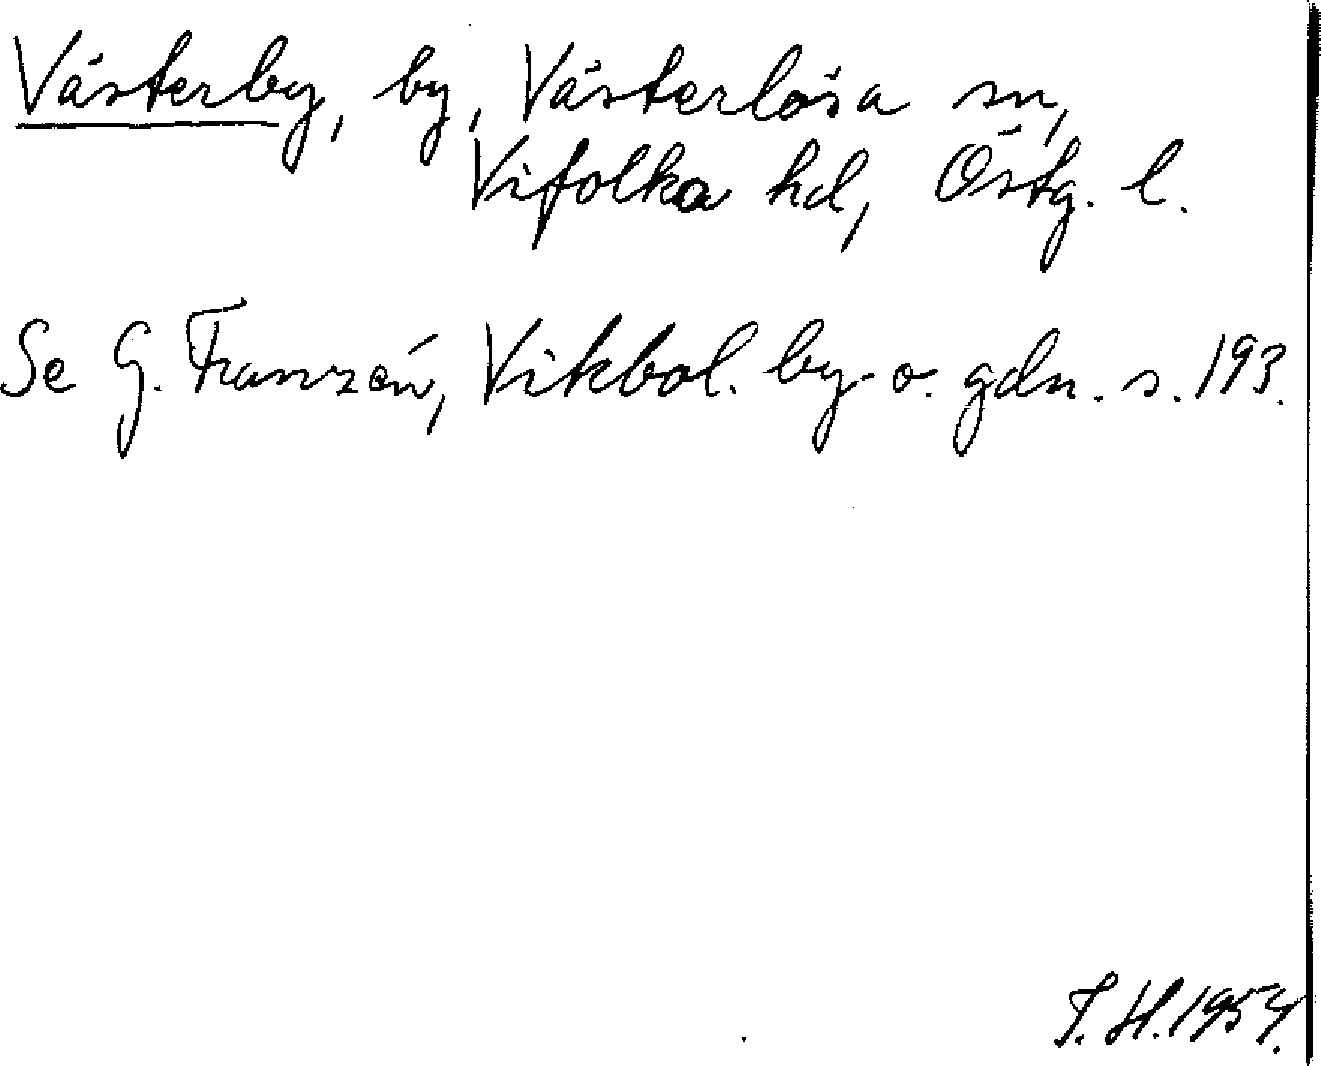 Västerby, by, Västerlösa sn,
Vifolka hd, Östg. l.
Se G. Franzén, Vikbol. by- o. gdn. s. 193.
T. H. 1954.